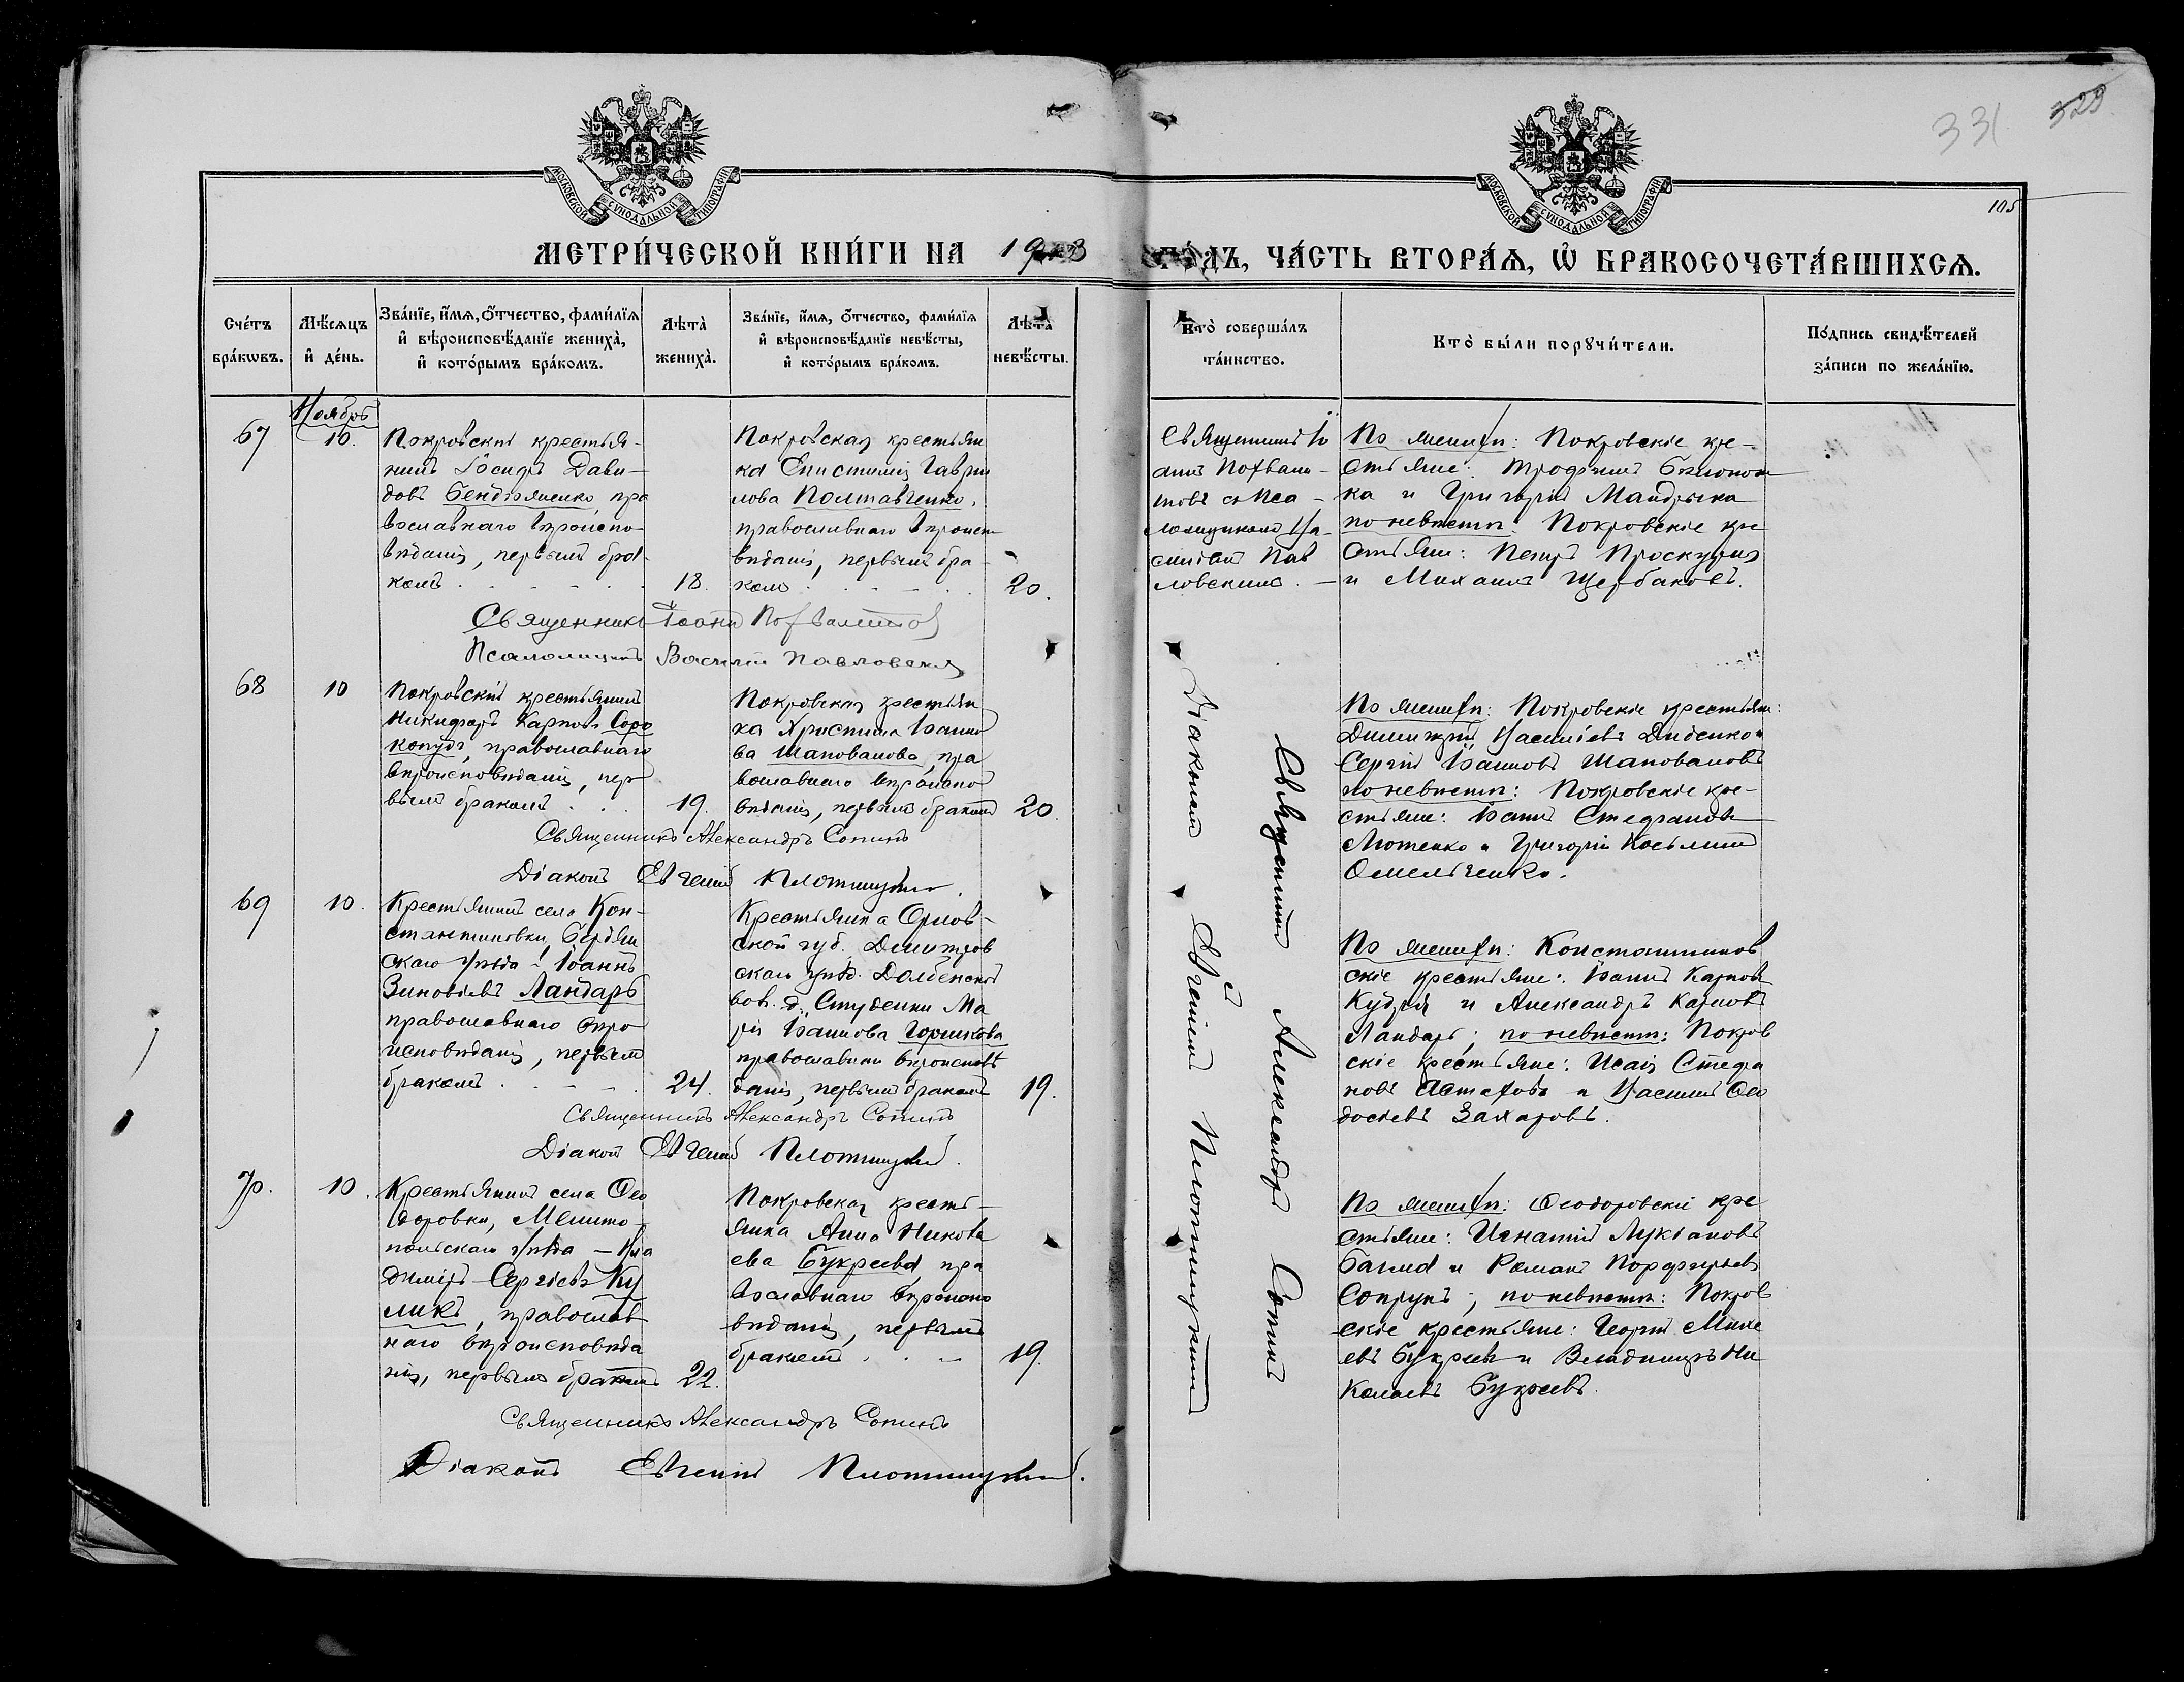 331
329
105
МОСКОВСКОЙ СУНОДАЛЬНОЙ ТИПОГРАФІИ
МОСКОВСКОЙ СУНОДАЛЬНОЙ ТИПОГРАФІИ
МЕТРИ́ЧЕСКОЙ КНИ́ГИ НА
ГО́ДЪ, ЧА́СТЬ ВТОРА́Я, Ѽ БРАКОСОЧЕТА́ВШИХСѦ.
Сче́тъ бра́кѡвъ.
Мѣ́сѧцъ и҆ де́нь.
Зва́нїе, и҆́мѧ, ѻ҆́тчество, фами́лїѧ и҆ вѣроисповѣ́данїе жениха̀, и҆ кото́рымъ бра́комъ.
Лѣ́та̀ жениха̀.
Зва́нїе, и҆́мѧ, ѻ҆́тчество, фами́лїѧ и҆ вѣроисповѣ́данїе невѣ́сты, и҆ кото́рымъ бра́комъ.
Лѣ́та̀ невѣ́сты.
Кто̀ соверша́лъ та́инство.
Кто̀ бы́ли порꙋчи́тели.
По́дпись свидѣ́телей за́писи по жела́нїю.
Ноябрь
67
10.
Покровскій крестья-
нинъ Іосифъ Дави-
довъ Бендюженко пра
вославнаго вѣроиспо-
вѣданія, первымъ бра-
комъ
18.
Покровская крестьян
ка Епистимія Гаврии
лова Полтавченко,
православнаго вѣроиспо
вѣданія, первымъ бра-
комъ
20.
Священникъ Іо
аннъ Похвали-
товъ съ Пса-
ломщикомъ Ва-
силіемъ Пав
ловскимъ.
По женихѣ: Покровскіе кре-
стьяне: Трофимъ
ка и Григорій Мандрыка
по невѣстѣ: Покровскіе кре
стьяне: Петръ Проскурня
и Михаилъ Щербаковъ.
Священникъ Іоаннъ Похвалитовъ
Псаломщикъ Василій Павловскій
68
10
Покровскій крестьянинъ
Никифоръ Карповъ Соро
копудъ, православнаго
вѣроисповѣданія, пер
вымъ бракомъ
19.
Покровская крестьян
ка Христина Іоанно
ва Шаповалова, пра
вославнаго вѣроиспо
вѣданія, первымъ бракомъ
20.
По женихѣ: Покровскіе крестьяне:
Димитрій Васильевъ Диденко и
Сергій Іоанновъ Шаповаловъ
по невѣстѣ: Покровскіе кре-
стьяне: Іоаннъ Стефановъ
Лютенко и Григорій Косьминъ
Омельченко.
Священникъ Александръ Сопинъ
Діаконъ Евгеній Плотницкій.
69
10.
Крестьянинъ села Кон-
стантиновки, Бердян
скаго уѣзда - Іоаннъ
Зиновіевъ Ландарь
православнаго вѣро
исповѣданія, первымъ
бракомъ
24.
Крестьянка Орлов-
ской губ. Дмитров
скаго уѣзд. Долбенской
вол. д. Студенки Ма
рія Іоаннова Горшкова
православнаго вѣроисповѣ
данія, первымъ бракомъ
19.
По женихѣ: Константинов
скіе крестьяне: Іоаннъ Карповъ
Кудря и Александръ Карповъ
Ландарь; по невѣстѣ: Покров
скіе крестьяне: Исаія Стефа
новъ Астаховъ и Василій Ѳео
досіевъ Захаровъ.
Священникъ Александръ Сопинъ
Діаконъ Евгеній Плотницкій.
70.
10.
Крестьянинъ села Ѳео
доровки, Мелито-
польскаго уѣзда - Вла
диміръ Сергіевъ Ку
ликъ, православ
наго вѣроисповѣда
нія, первымъ бракомъ
22.
Покровская кресть-
янка Анна Никола
ева Букреева, пра
вославнаго вѣроиспо
вѣданія, первымъ
бракомъ
19.
По женихѣ: Ѳеодоровскіе кре
стьяне: Игнатій Лукіановъ
и Романъ Порфирьевъ
Сопрунъ; по невѣстѣ: Покров
скіе крестьяне: Георгій Михе
евъ Букреевъ и Владимиръ Ни
колаевъ Букреевъ.
Священникъ Александръ Сопинъ
Діаконъ Евгеній Плотницкій.
Священникъ Александръ Сопинъ
Діакономъ Евгеніемъ Плотницкимъ